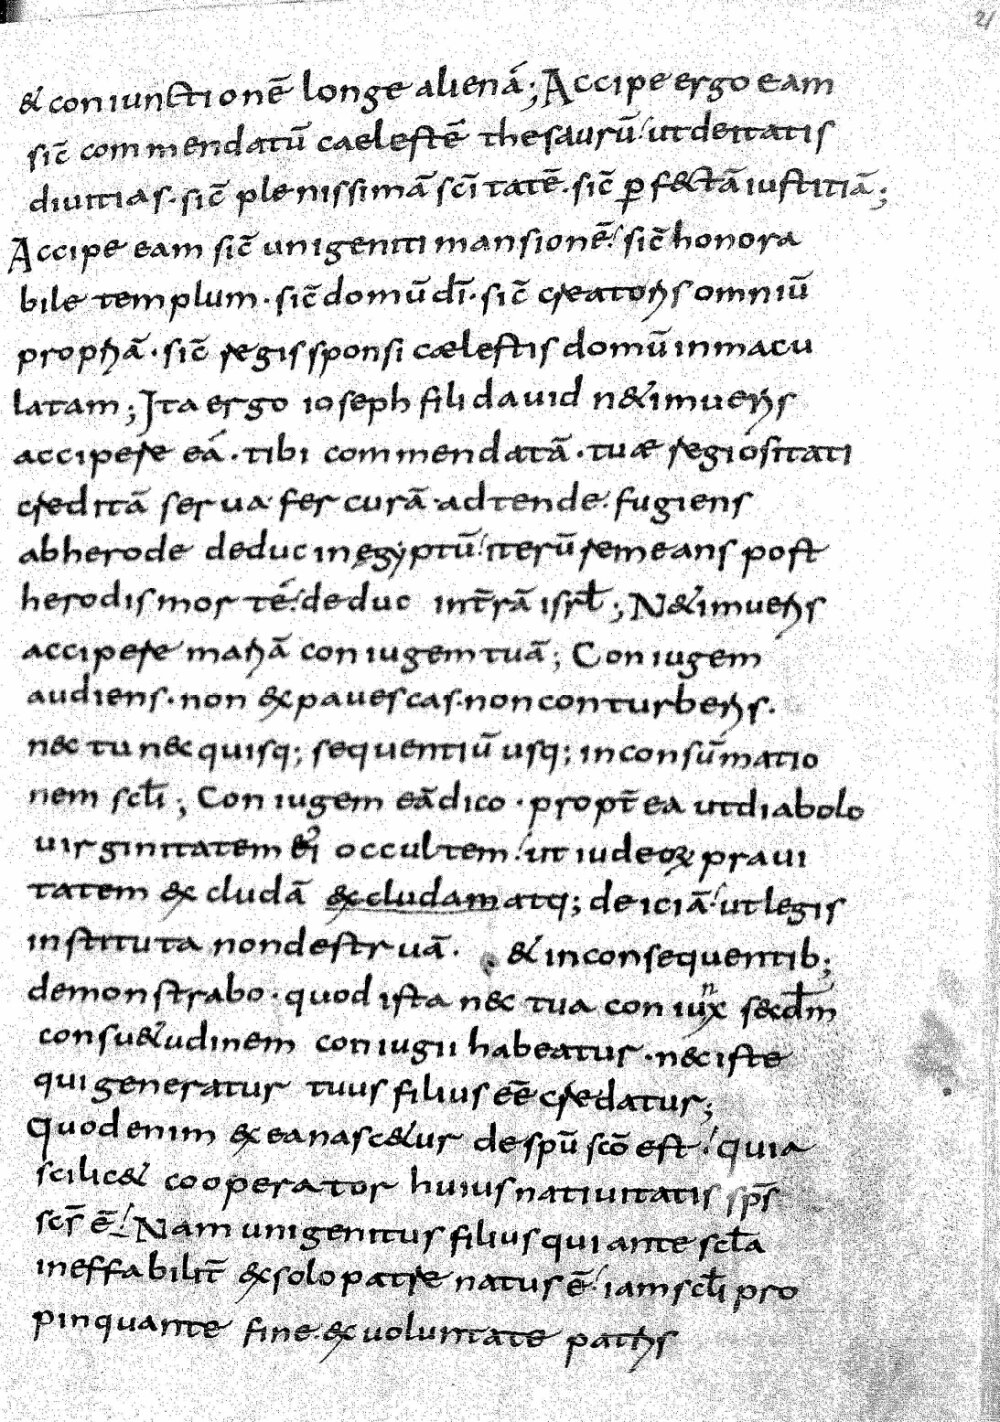 21
& coniunctionē longe alienā; Accipe ergo eam
sic̄ commendatū caelestē thesaurū ut deitatis
diuitias · sic̄ plenissimā sc̄itatē · sic̄ ꝑf&ctā iustitiā;
Accipe eam sic̄ unigeniti mansionē sic̄ honora
bile templum · sic̄ domū dī · sic̄ creatoris omniū
propriā · sic̄ regis sponsi cælestis domū inmacu
latam; Ita ergo ioseph fili dauid n& timueris
accipere eā · tibi commendatā · tuæ regiositati
creditā serua fer curā · adtende · fugiens
ab herode deduc in ęgyptū iterū remeans post
herodis mortē deduc int̄rā isrł; N& timueris
accipere mariā coniugem tuā; Coniugem
audiens · non expauescas · non conturberis ·
nec tu nec quisq; sequentiū usq; in consūmatio
nem scł̄i; Coniugem eā dico · propt̄ ea ut diabolo
uirginitatem ei occultem ut iudeoꝝ praui
tatem excludā excludam atq; deiciā ut legis
instituta non destruā · & in consequentib;
demonstrabo · quod ista nec tua coniuⁿx secđm
consu&udinem coniugii habeatur · nec iste
qui generatur tuus filius eē credatur;
Quod enim ex ea nasc&ur de spū sc̄o est quia
scilic& cooperator huius natiuitatis sps̄
scs̄ ē Nam unigenitus filius qui ante scł̄a
ineffabilit̄ ex solo patre natus ē iam scł̄i pro
pinquante fine · ex uoluntate patris